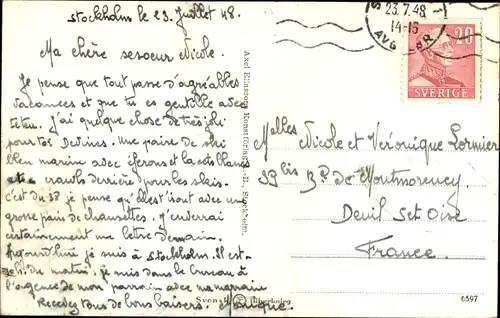 Stockholm le 23 Juillet 48.
Ma chère sesoeur Nicole.
Je pense que tout passe d'agréables
vacances et que tu es gentille avec
teteu. J'ai quelque chose de très joli
pour toi Devines. Une paire de ski
bleu marine avec et lacets blancs
et crawls derrière pour les skis.
c'est du 38 je pense qu'elle t'iront avec une
grosse paire de chaussettes. J'enverrai
certainement une lettre demain.
Aujourd'hui je suis à Stockholm. Il est
du matin, je suis dans le bureau à
l'agence de mon parrain avec ma marraine
Recevez tous de bons baisers. Monique.
Axel Eliassons Konstförlag, A.-B., Stockholm.
Svensk
6597
23.7.48
14-15
AVG
20
SVERIGE
Melles Nicole et Véronique Lormier
39 bis Bd de Montmorency
Deuil Set Oise
France